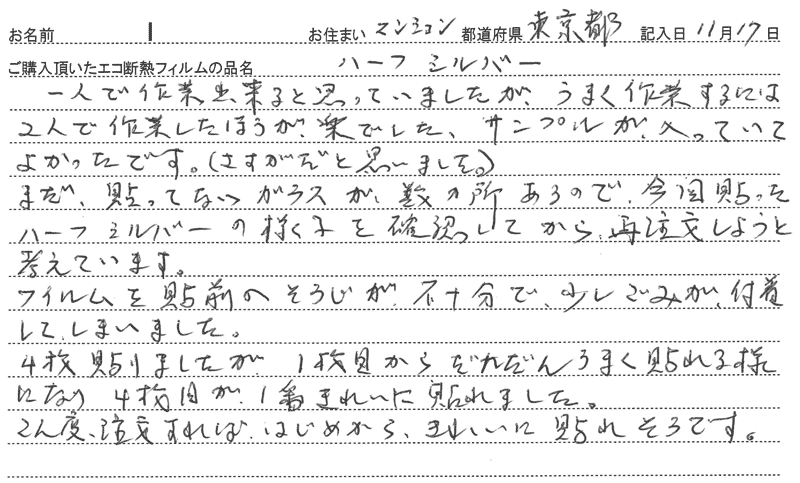 お名前 I お住まい マンション 都道府県 東京都 記入日 11月17日
ご購入頂いたエコ断熱フィルムの品名 ハーフミルバー
一人で作業出来ると思っていましたが、うまく作業するには
2人で作業したほうが、楽でした、サンプルが、入っていて
よかったです。(さすがだと思いました。)
まだ、貼ってないガラスが、数カ所あるので、今回貼った
ハーフミルバーの様子を確認してから、再注文しようと
考えています。
フィルムを貼前のそうじが、不十分で、少しごみが、付着
して、しまいました。
4枚貼りましたが、1枚目からだんだんうまく貼れる様
になり4枚目が、1番きれいに貼れました。
こん度、注文すれば、はじめから、きれいに貼れそうです。